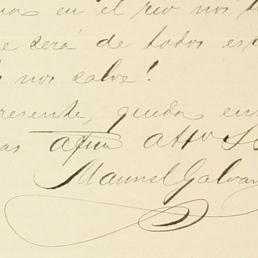 en el reo nos
e será de todos es
nos salve!
resente, queda en
as afmo atto S S
Manuel Galvan